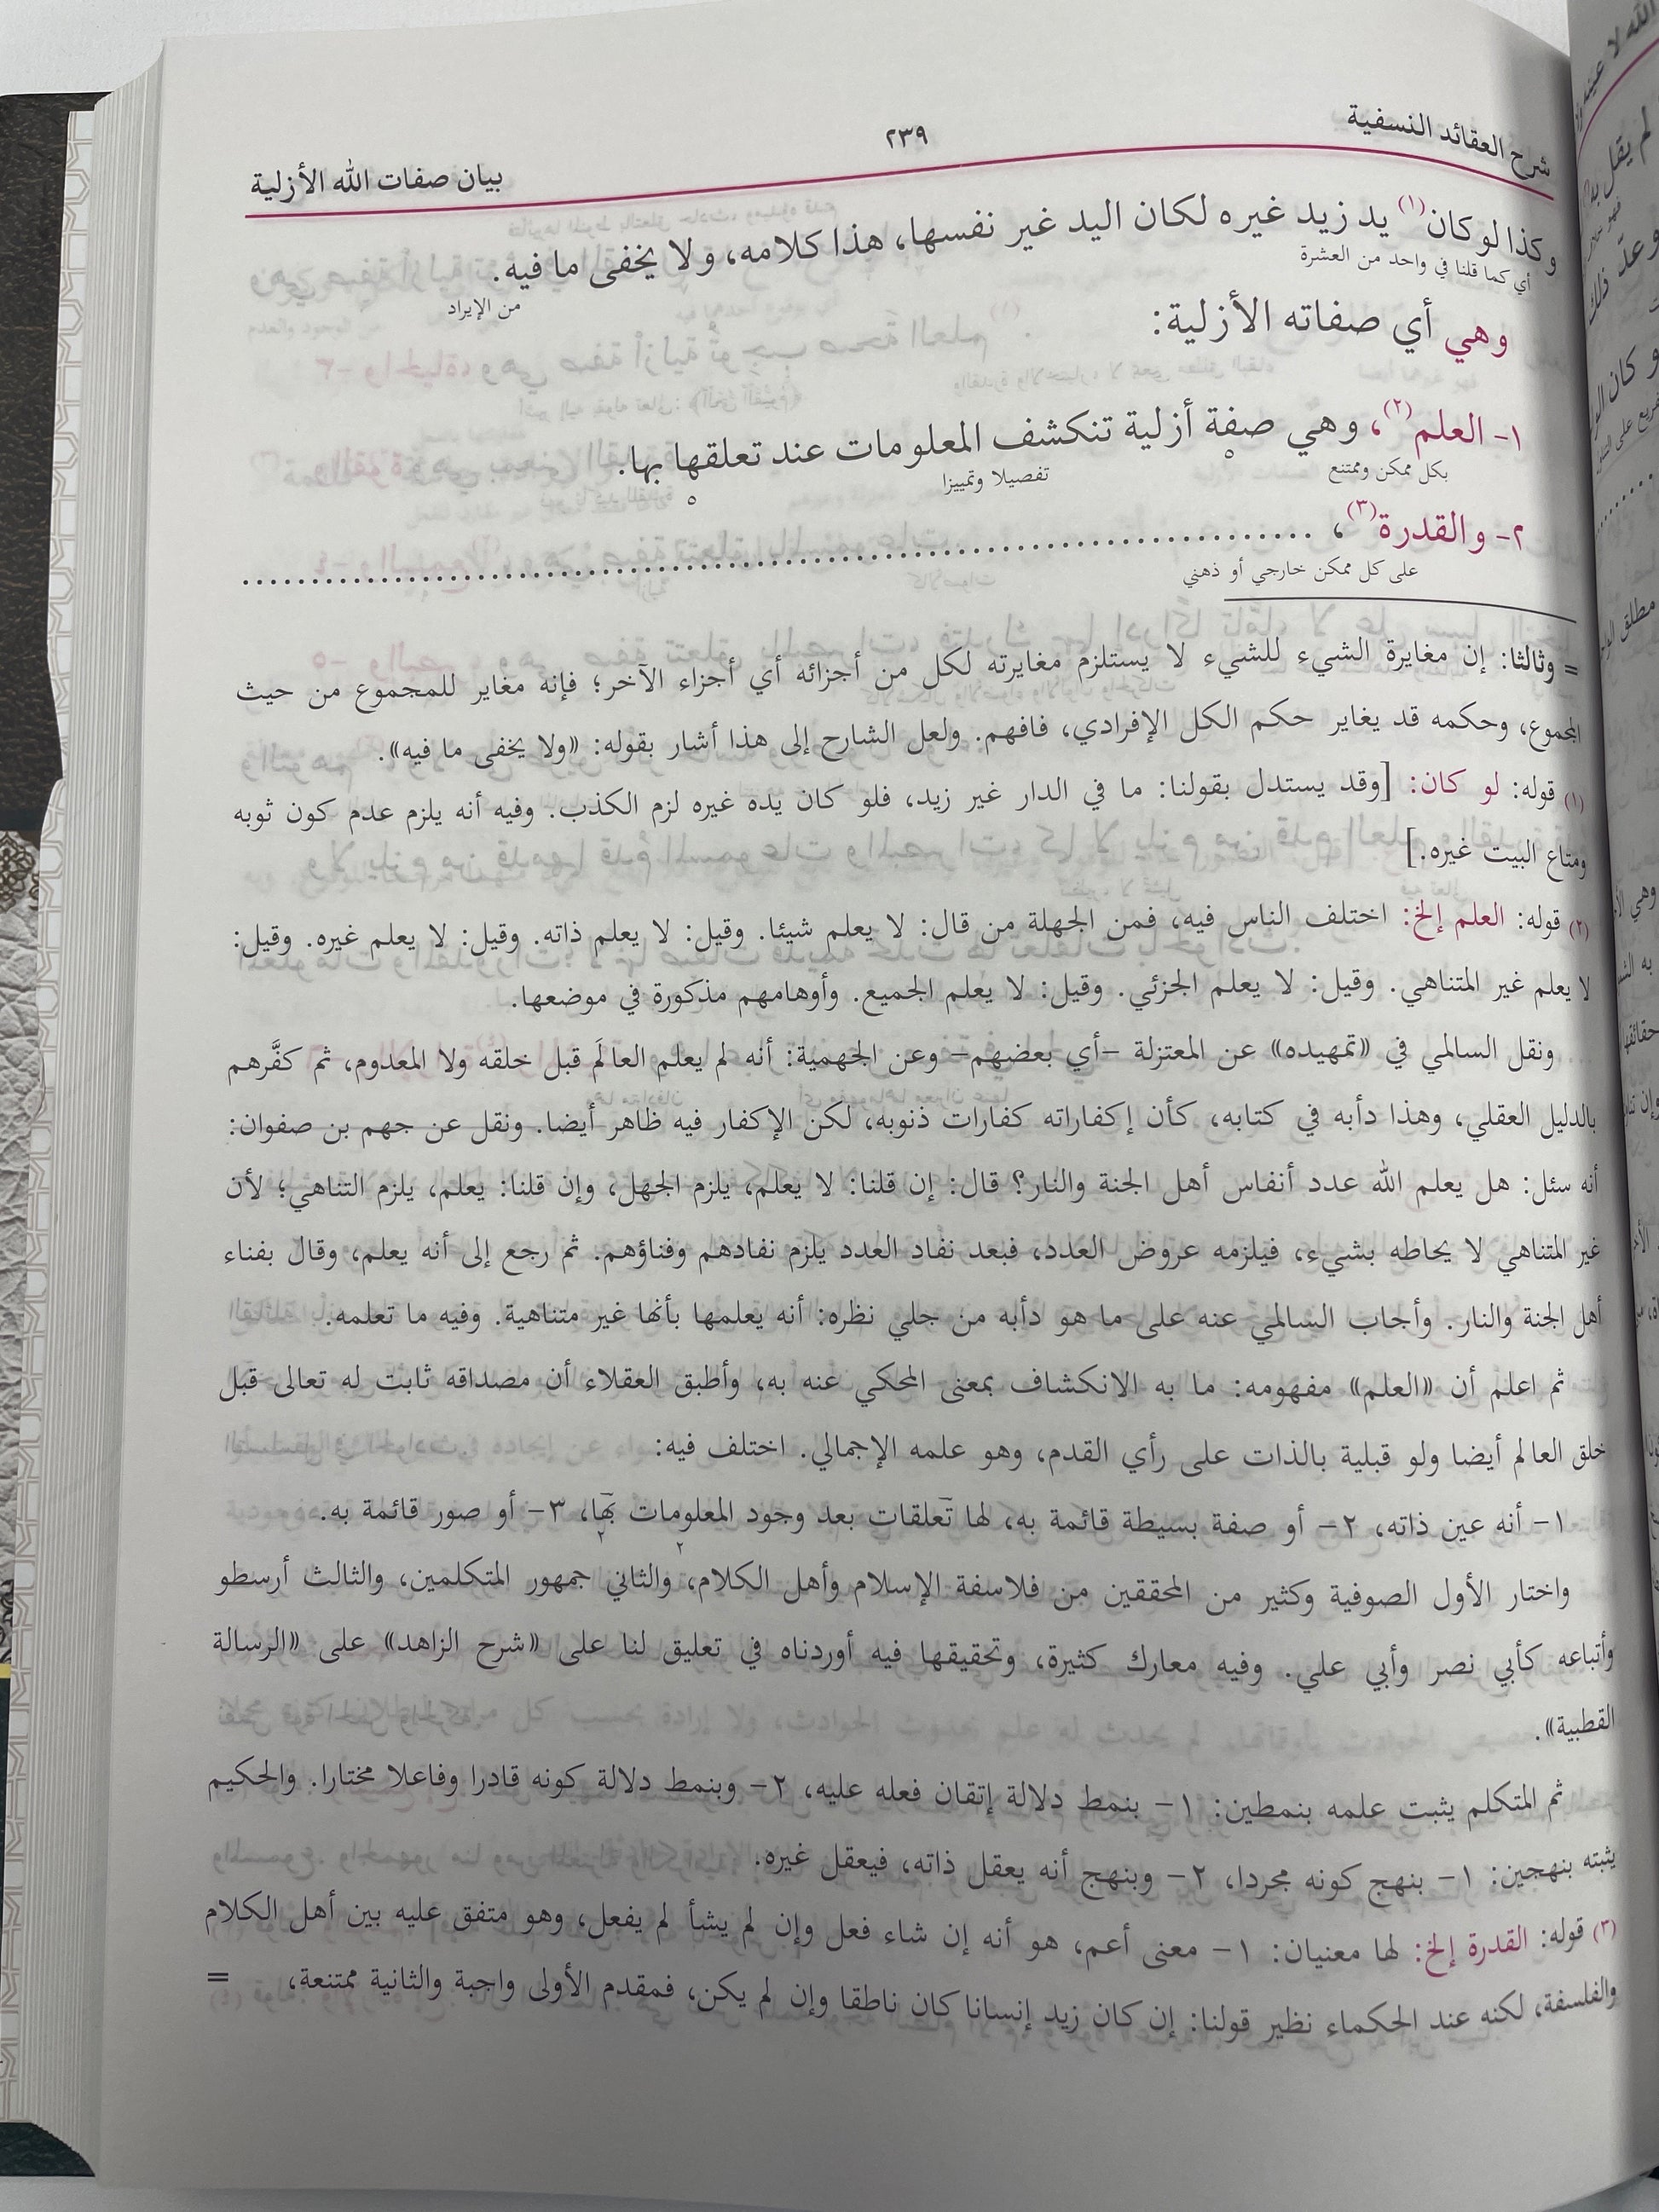 شرح العقائد النسفية
٢٣٩
بيان صفات الله الأزلية
وكذا لو كان(١) يد زيد غيره لكان اليد غير نفسها، هذا كلامه، ولا يخفى ما فيه.
أي كما قلنا في واحد من العشرة
من الإيراد
وهي أي صفاته الأزلية:
١- العلم(٢)، وهي صفة أزلية تنكشف المعلومات عند تعلقها بها.
بكل ممكن وممتنع
تفصيلا وتمييزا
٢- والقدرة(٣)، ........................................
على كل ممكن خارجي أو ذهني
= وثالثا: إن مغايرة الشيء للشيء لا يستلزم مغايرته لكل من أجزائه أي أجزاء الآخر؛ فإنه مغاير للمجموع من حيث
المجموع، وحكمه قد يغاير حكم الكل الإفرادي، فافهم. ولعل الشارح إلى هذا أشار بقوله: «ولا يخفى ما فيه».
(١) قوله: لو كان: [وقد يستدل بقولنا: ما في الدار غير زيد، فلو كان يده غيره لزم الكذب. وفيه أنه يلزم عدم كون ثوبه
ومتاع البيت غيره.]
(٢) قوله: العلم إلخ: اختلف الناس فيه، فمن الجهلة من قال: لا يعلم شيئا. وقيل: لا يعلم ذاته. وقيل: لا يعلم غيره. وقيل:
لا يعلم غير المتناهي. وقيل: لا يعلم الجزئي. وقيل: لا يعلم الجميع. وأوهامهم مذكورة في موضعها.
ونقل السالمي في «تمهيده» عن المعتزلة -أي بعضهم- وعن الجهمية: أنه لم يعلم العالَم قبل خلقه ولا المعدوم، ثم كفَّرهم
بالدليل العقلي، وهذا دأبه في كتابه، كأن إكفاراته كفارات ذنوبه، لكن الإكفار فيه ظاهر أيضا. ونقل عن جهم بن صفوان:
أنه سئل: هل يعلم الله عدد أنفاس أهل الجنة والنار؟ قال: إن قلنا: لا يعلم، يلزم الجهل، وإن قلنا: يعلم، يلزم التناهي؛ لأن
غير المتناهي لا يحاطه بشيء، فيلزمه عروض العدد، فبعد نفاد العدد يلزم نفادهم وفناؤهم. ثم رجع إلى أنه يعلم، وقال بفناء
أهل الجنة والنار. وأجاب السالمي عنه على ما هو دأبه من جلي نظره: أنه يعلمها بأنها غير متناهية. وفيه ما تعلمه.
ثم اعلم أن «العلم» مفهومه: ما به الانكشاف بمعنى المحكي عنه به، وأطبق العقلاء أن مصداقه ثابت له تعالى قبل
خلق العالم أيضا ولو قبلية بالذات على رأي القدم، وهو علمه الإجمالي. اختلف فيه:
١- أنه عين ذاته، ٢- أو صفة بسيطة قائمة به، لها تعلقات بعد وجود المعلومات بها، ٣- أو صور قائمة به.
واختار الأول الصوفية وكثير من المحققين من فلاسفة الإسلام وأهل الكلام، والثاني جمهور المتكلمين، والثالث أرسطو
وأتباعه كأبي نصر وأبي علي. وفيه معارك كثيرة، وتحقيقها فيه أوردناه في تعليق لنا على «شرح الزاهد» على «الرسالة
القطبية».
ثم المتكلم يثبت علمه بنمطين: ١- بنمط دلالة إتقان فعله عليه، ٢- وبنمط دلالة كونه قادرا وفاعلا مختارا. والحكيم
يثبته بنهجين: ١- بنهج كونه مجردا، ٢- وبنهج أنه يعقل ذاته، فيعقل غيره.
(٣) قوله: القدرة إلخ: لها معنيان: ١- معنى أعم، هو أنه إن شاء فعل وإن لم يشأ لم يفعل، وهو متفق عليه بين أهل الكلام
والفلسفة، لكنه عند الحكماء نظير قولنا: إن كان زيد إنسانا كان ناطقا وإن لم يكن، فمقدم الأولى واجبة والثانية ممتنعة، =